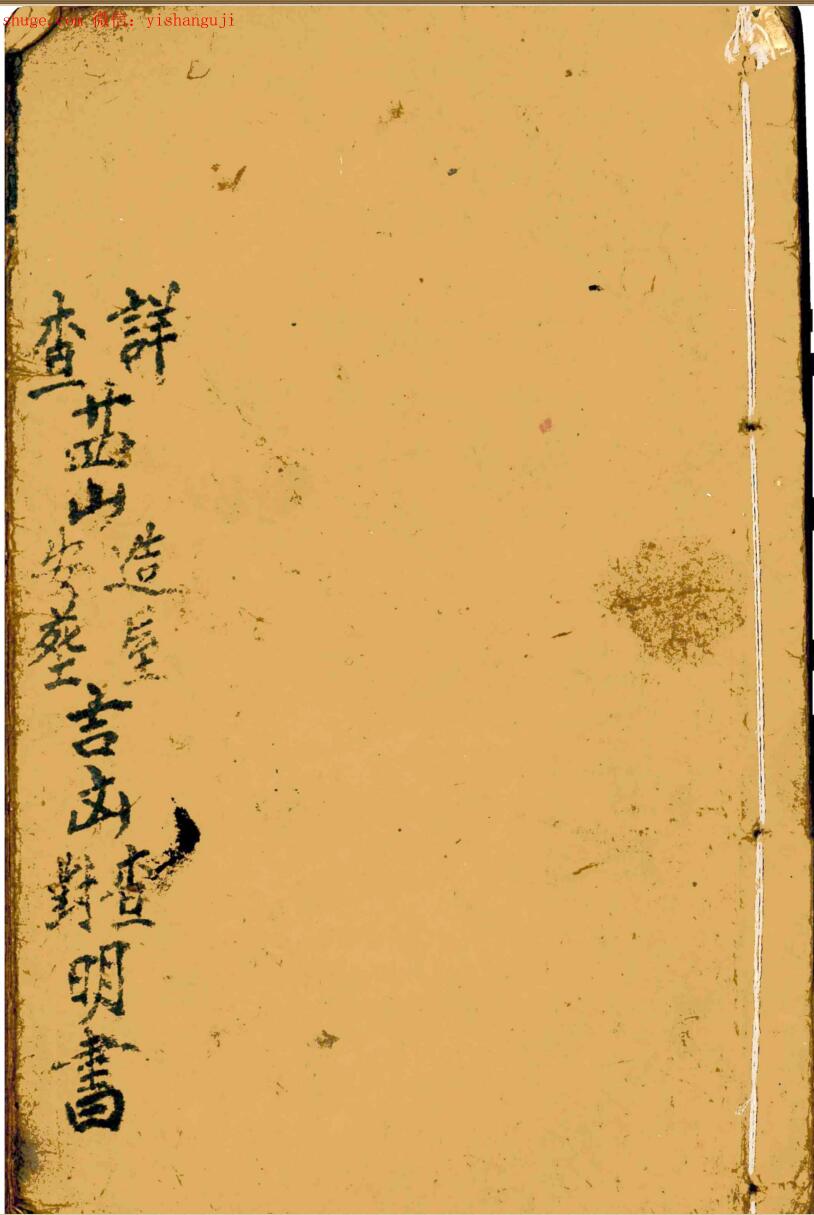 shuge.com 微信：yishanguji
詳查廿四山造屋安塟吉凶查對明書